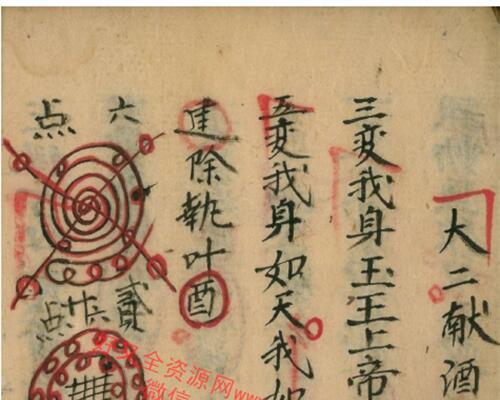 大二献酒
三変我身玉王上帝
五変我身如天我如
建除執叶酉
六点
貳
十六点
全资源网www
微信